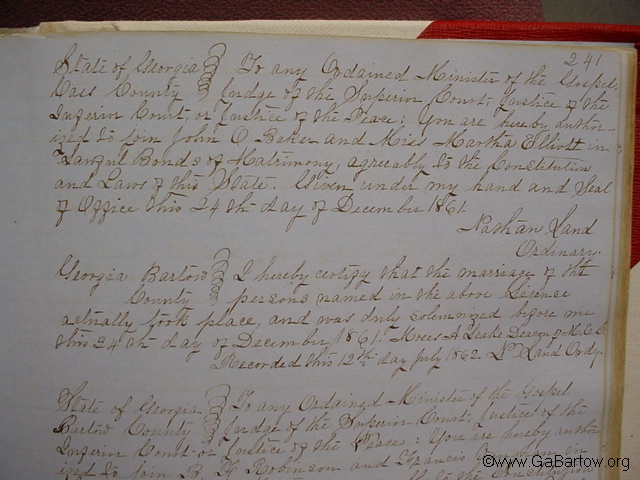 241
State of Georgia To any Ordained Minister of the Gospel,
Cass County Judge of the Superior Court, Justice of the
Inferior Court, or Justice of the Peace: You are hereby author-
ized to join John O Baker and Miss Martha Elliott in
Lawful Bonds of Matrimony, agreeably to the Constitution
and Laws of this State. Given under my hand and Seal
of Office this 24th day of December 1861.
Nathan Land
Ordinary.
Georgia Bartow I hereby certify that the marriage of the
County persons named in the above License
actually took place, and was duly solemnized before me
this 24th day of December, 1861. A Leake Deacon of M. E. C.
Recorded this 12th day July 1862. N Land Ordy.
State of Georgia To any Ordained Minister of the Gospel
Bartow County Judge of the Superior Court, Justices of the
Inferior Court or Justice of the Peace: You are hereby author
ized to join B. F. Robinson and Francis in
©www.GaBartow.org